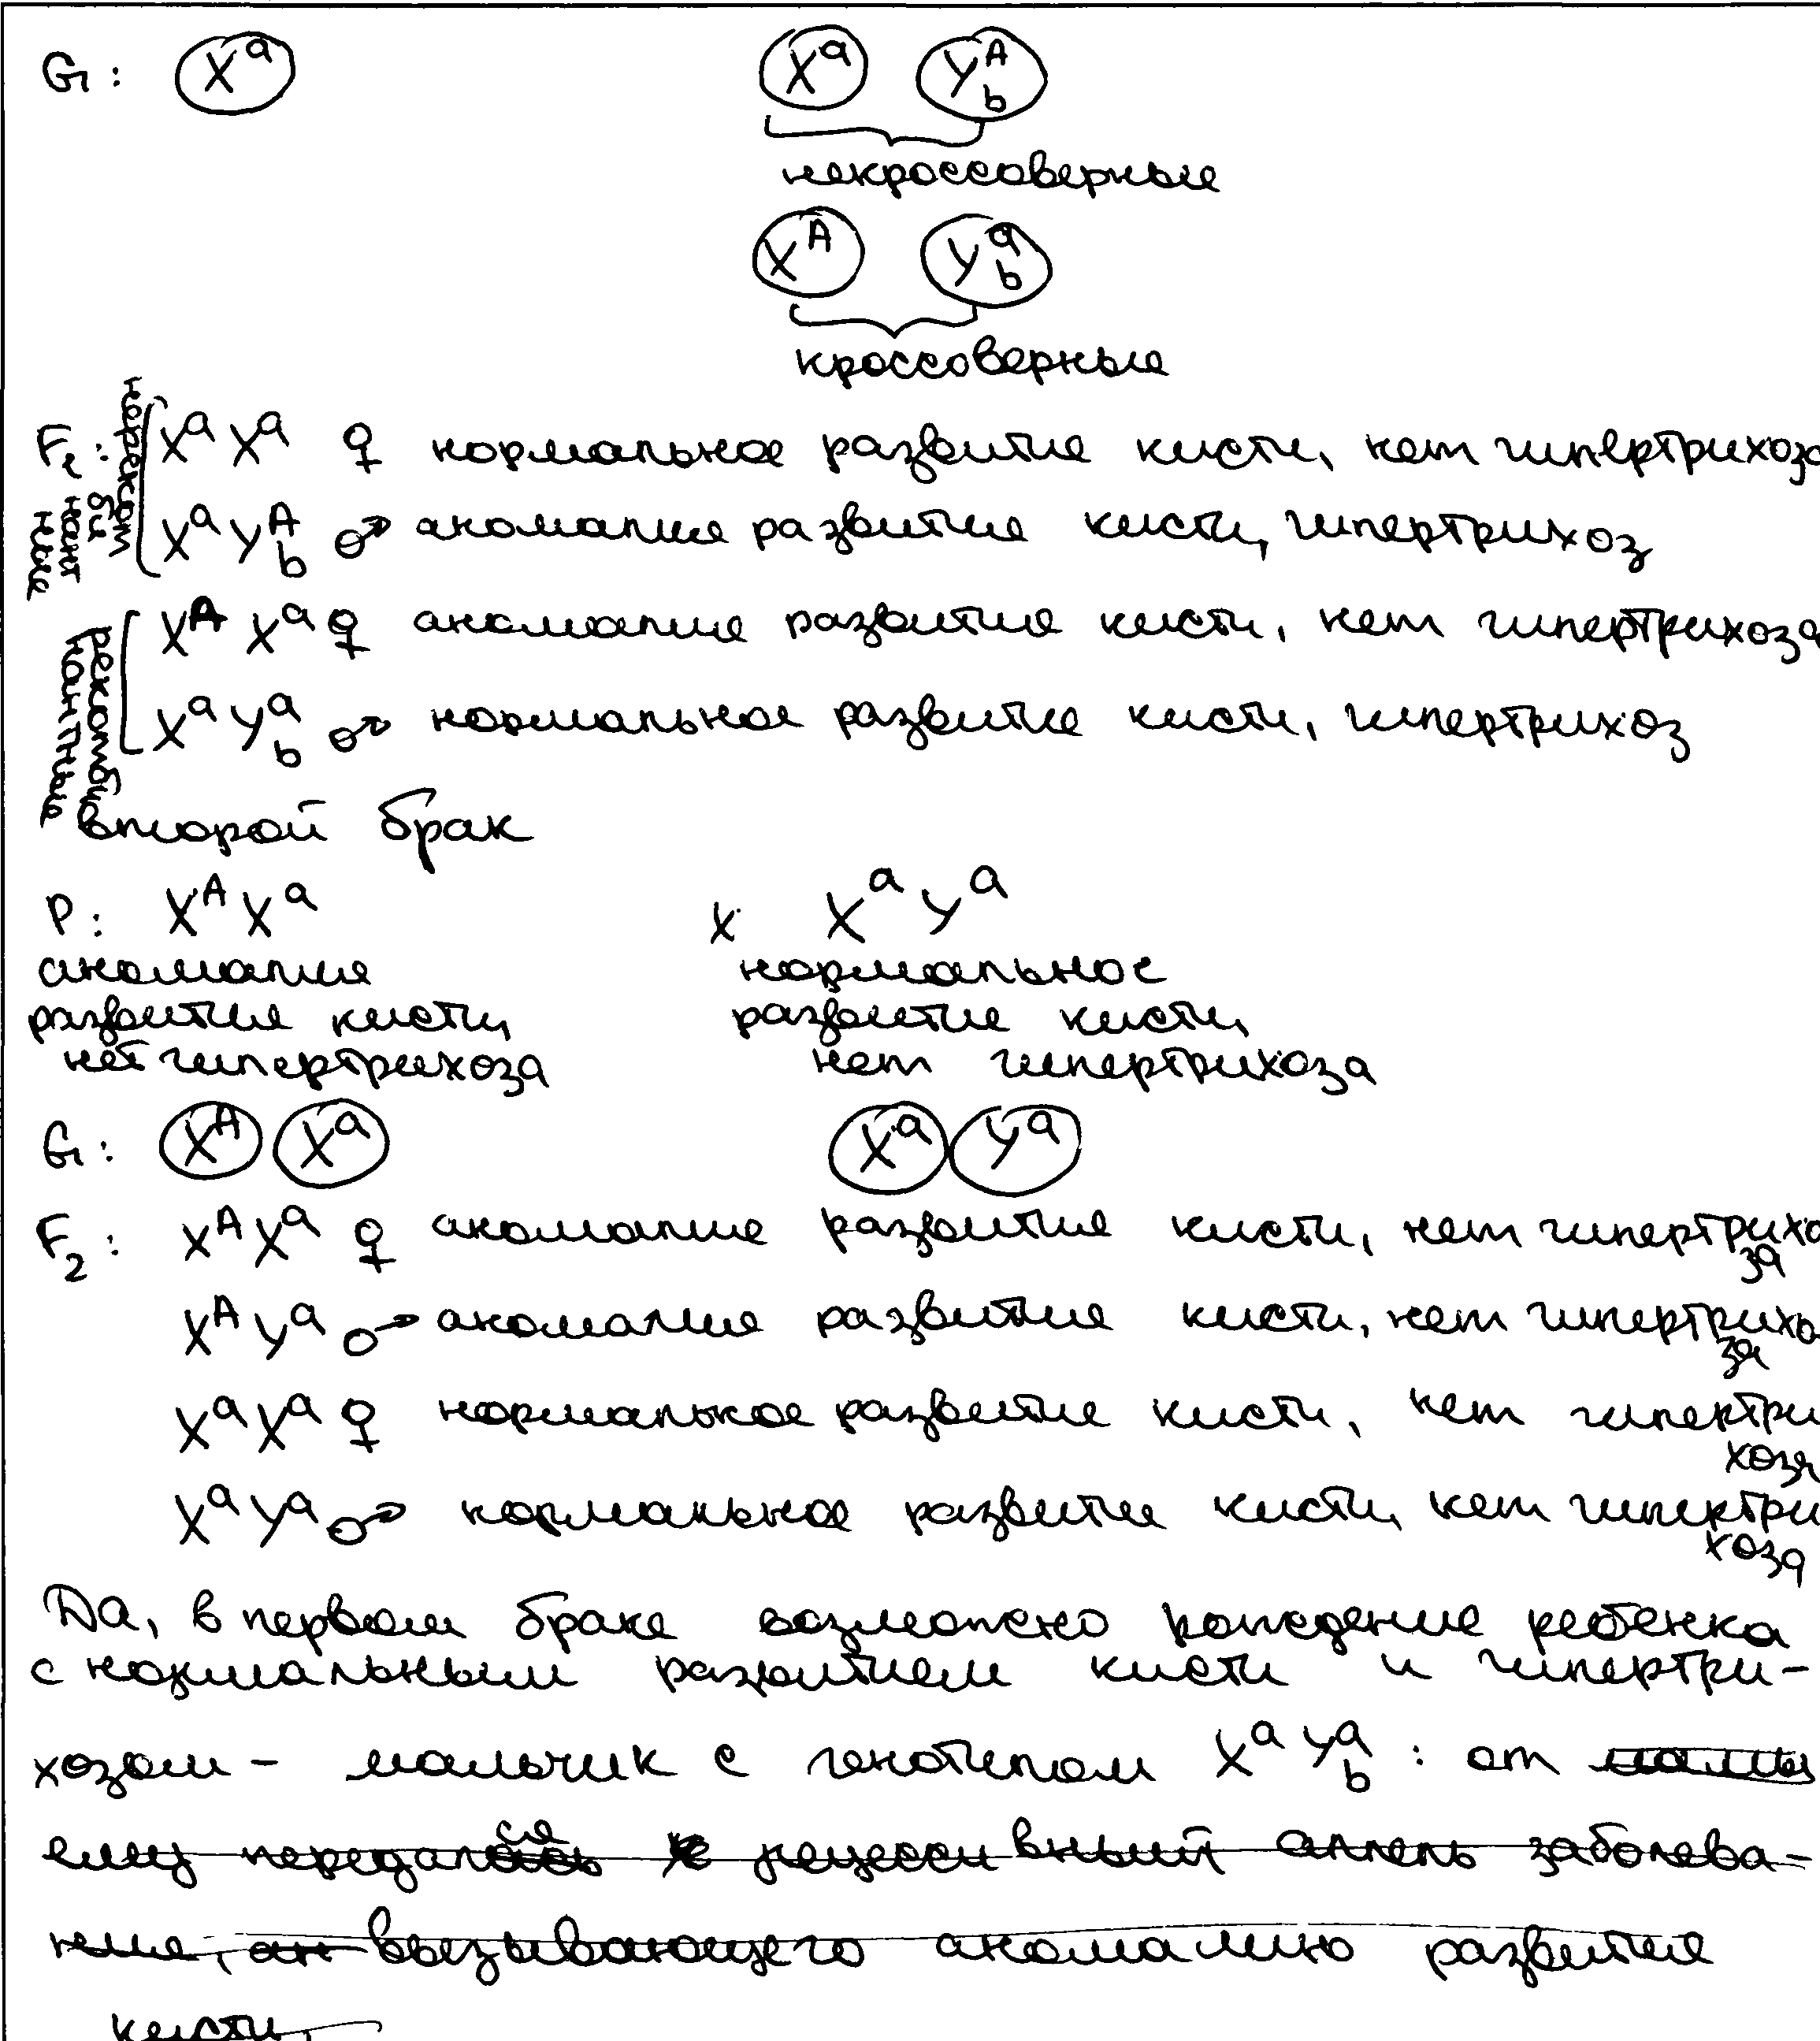 G: X^a X^a Y^A_b
некроссоверные
X^A Y^a_b
кроссоверные
F1: X^a X^a ♀ нормальное развитие кисти, нет гипертрихоза
X^a Y^A_b ♂ аномалия развитие кисти, гипертрихоз
нерекомбинантные
X^A X^a ♀ аномалия развития кисти, нет гипертрихоза
X^a Y^a_b ♂ нормальное развитие кисти, гипертрихоз
рекомбинантные
второй брак
P: X^A X^a x X^a Y^a
аномалия нормальное
развития кисти, развитие кисти,
нет гипертрихоза нет гипертрихоза
G: X^A X^a X^a Y^a
F2: X^A X^a ♀ аномалие развития кисти, нет гипертрихоза
X^A Y^a ♂ аномалие развития кисти, нет гипертрихоза
X^a X^a ♀ нормальное развитие кисти, нет гипертрихоза
X^a Y^a ♂ нормальное развитие кисти, нет гипертрихоза
Да, в первом браке возможно рождение ребенка
с нормальным развитием кисти и гипертри-
хозом - мальчик с генотипом X^a Y^a_b : от мамы
ему передался рецессивный аллель заболева-
ния, вызывающего аномалию развития
кисти,